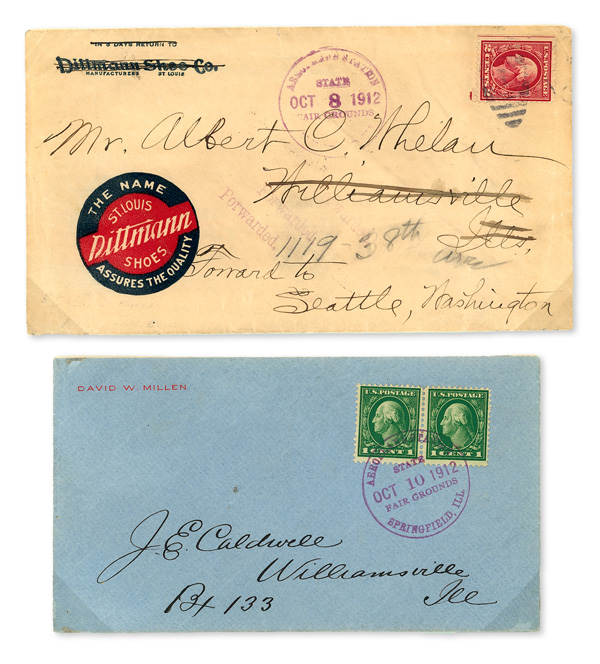 IN 5 DAYS RETURN TO
Dittmann Shoe Co.
MANUFACTURERS ST. LOUIS
STATION
STATE
OCT 8 1912
FAIR GROUNDS
2 CENTS 2
Mr. Albert C. Whelan
Williamsville
Ills.
Forwarded
Forwarded
1119 - 38th Ave
Forward to
Seattle, Washington
THE NAME
ST. LOUIS
Dittmann
SHOES
ASSURES THE QUALITY
DAVID W. MILLEN
U.S. POSTAGE
1 CENT 1
U.S. POSTAGE
1 CENT 1
STATE
OCT 10 1912
FAIR GROUNDS
SPRINGFIELD, ILL
J. E. Caldwell
Williamsville
Bx 133 Ill